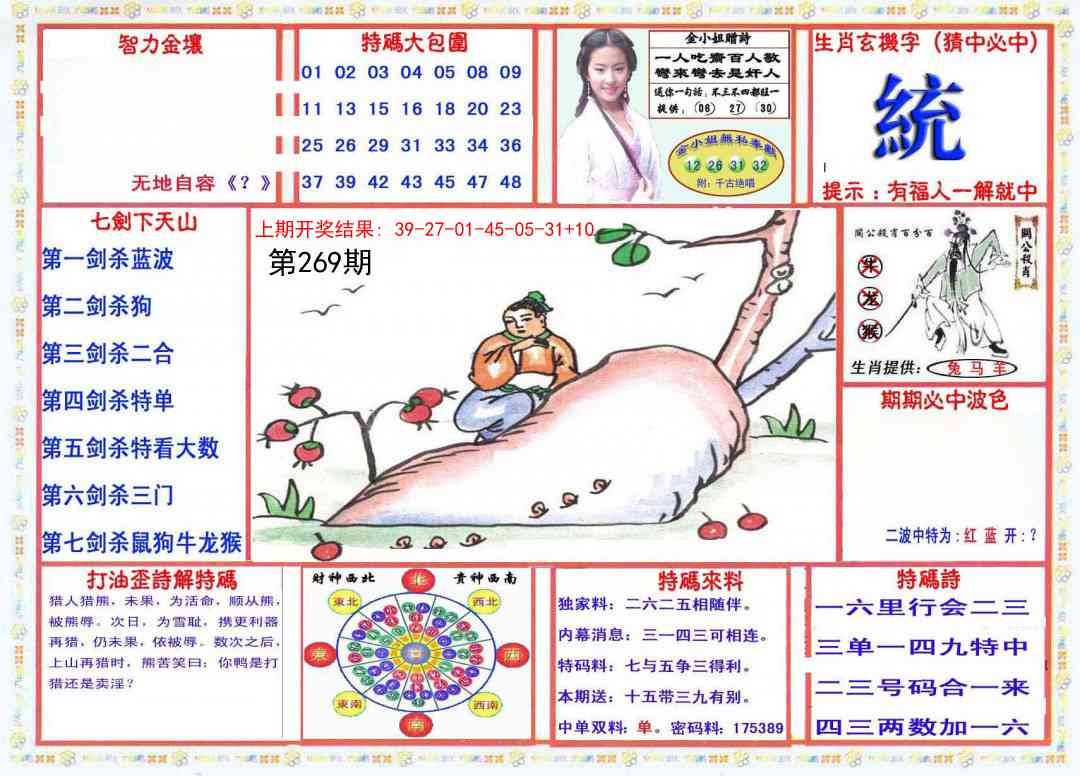 智力金壤
无地自容《?》
特碼大包圍
01 02 03 04 05 08 09
11 13 15 16 18 20 23
25 26 29 31 33 34 36
37 39 42 43 45 47 48
金小姐贈詩
一人吃齋百人敬
彎來彎去是奸人
送你一句話:不三不四都旺一
提供:(06) (27) (30)
金小姐無私奉獻
12 26 31 32
附:千古绝唱
生肖玄機字(猜中必中)
統
提示:有福人一解就中
七劍下天山
第一剑杀蓝波
第二剑杀狗
第三剑杀二合
第四剑杀特单
第五剑杀特看大数
第六剑杀三门
第七剑杀鼠狗牛龙猴
上期开奖结果: 39-27-01-45-05-31+10
第269期
關公殺肖百分百
關公殺肖
牛
龙
猴
生肖提供: 兔 马 羊
期期必中波色
二波中特为:红 蓝 开:?
打油歪詩解特碼
猎人猎熊,未果,为活命,顺从熊,
被熊辱。次日,为雪耻,携更利器
再猎,仍未果,依被辱。数次之后,
上山再猎时,熊苦笑曰:你鸭是打
猎还是卖淫?
财神西北 贵神西南
北
東北
西北
東
西
東南
西南
南
特碼來料
独家料:二六二五相随伴。
内幕消息:三一四三可相连。
特码料:七与五争三得利。
本期送:十五带三九有别。
中单双料:单。密码料:175389
特碼詩
一六里行会二三
三单一四九特中
二三号码合一来
四三两数加一六